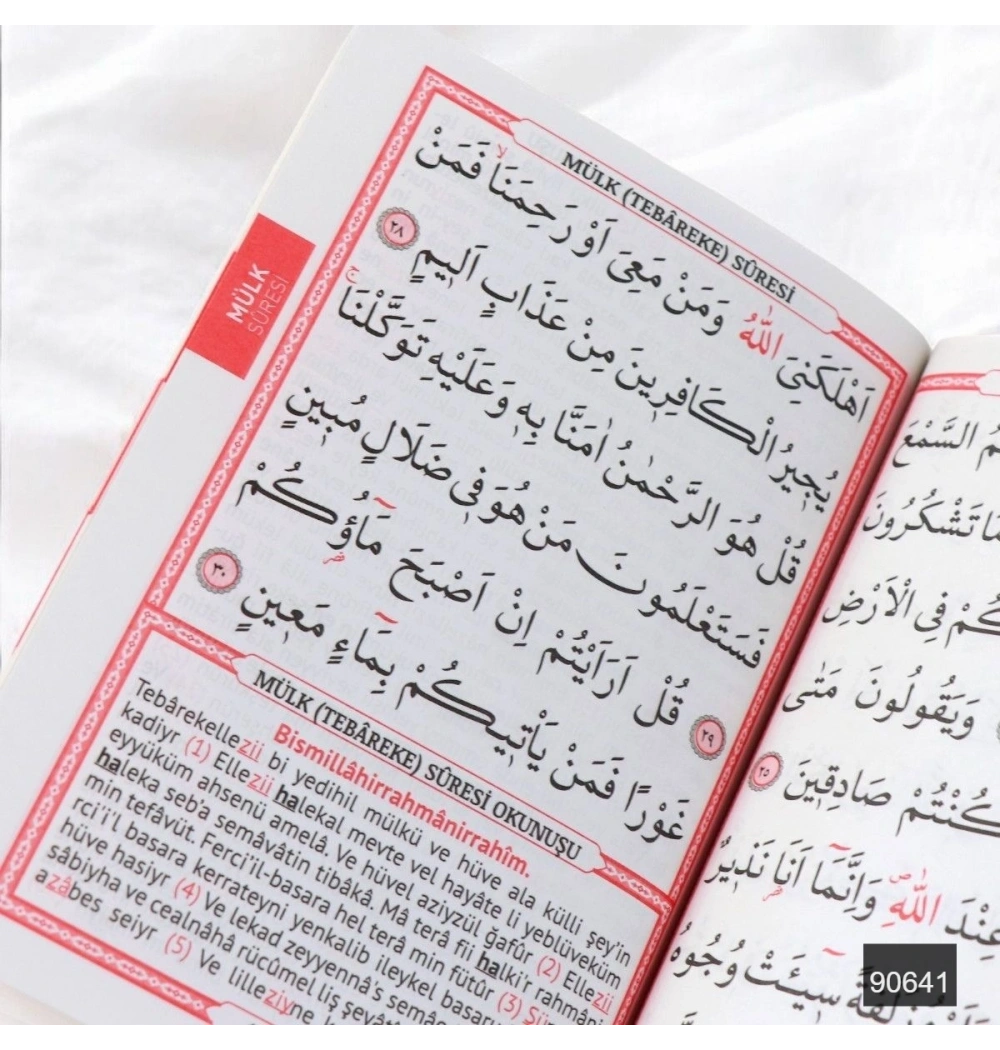 MÜLK
SÛRESİ
MÜLK (TEBÂREKE) SÛRESİ
اَهْلَكَنِيَ اللّٰهُ وَمَنْ مَعِيَ اَوْ رَحِمَنَاۙ فَمَنْ
يُجِيرُ الْكَافِرِينَ مِنْ عَذَابٍ اَلِيمٍ ٢٨
قُلْ هُوَ الرَّحْمٰنُ اٰمَنَّا بِهٖ وَعَلَيْهِ تَوَكَّلْنَاۚ
فَسَتَعْلَمُونَ مَنْ هُوَ فِي ضَلَالٍ مُبِينٍ
٢٩ قُلْ اَرَاَيْتُمْ اِنْ اَصْبَحَ مَٓاؤُ۬كُمْ
غَوْرًا فَمَنْ يَأْتِيكُمْ بِمَٓاءٍ مَعِينٍ ٣٠
MÜLK (TEBÂREKE) SÛRESİ OKUNUŞU
Bismillâhirrahmânirrahîm.
Tebârekellezii bi yedihil mülkü ve hüve ala külli şey'in
kadiyr (1) Ellezii halekal mevte vel hayâte li yeblüveküm
eyyüküm ahsenü amelâ. Ve hüvel aziyzül ğafûr (2) Ellezii
haleka seb'a semâvâtin tibâkâ. Mâ terâ fii halki'r rahmâni
min tefâvüt. Ferci'il-basara hel terâ min fütûr (3)
rci'i'l basara kerrateyni yenkalib ileykel
hüve hasiyr (4) Ve lekad zeyyennâ's
sâbiyha ve cealnâhâ rücûmel liş
azâbes seiyr (5) Ve lilleziyne
السَّمْعَ
تَشْكُرُونَ
فِي الْاَرْضِ
وَيَقُولُونَ مَتٰى
كُنْتُمْ صَادِقِينَ ٢٥
عِنْدَ اللّٰهِ وَاِنَّمَٓا اَنَا۬ نَذِيرٌ
سِيٓـَٔتْ وُجُوهُ
90641